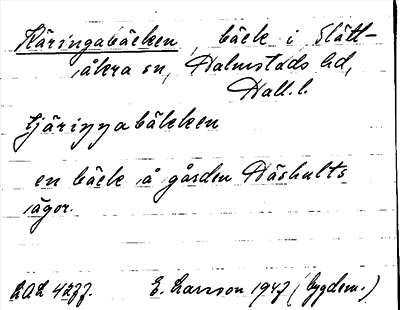 Käringabäcken, bäck i Slätt-
åkra sn, Halmstads hd,
Hall. l.
tjäriŋŋabäkken
en bäck å gården Häshults
ägor.
LAL 4277. E. Larsson 1947 (bygdem.)